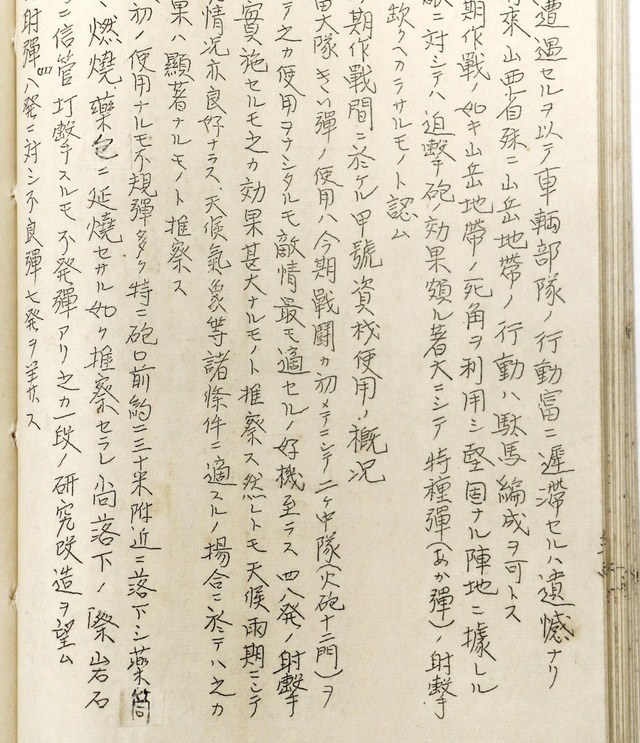 遭遇セルヲ以テ車輌部隊ノ行動富ニ遅滞セルハ遺憾ナリ
将来山西省殊ニ山岳地帯ノ行動ハ駄馬編成ヲ可トス
期作戦ノ如キ山岳地帯ノ死角ヲ利用シ堅固ナル陣地ニ據レル
敵ニ対シテハ迫撃砲ノ効果頗ル著大ニシテ特種弾(あか弾)ノ射撃
欽クヘカラサルモノト認ム
今期作戦間ニ於ケル甲號資材使用ノ概況
當大隊きい弾ノ使用ハ今期戦闘カ初メテニシテ二ケ中隊(火砲十二門)ヲ
テ之カ使用ヲナシタルモ敵情最モ適セルノ好機至ラス四八発ノ射撃
實施セルモ之カ効果甚大ナルモノト推察ス然レトモ天候雨期ニシテ
情況亦良好ナラス、天候氣象等諸條件ニ適スルノ場合ニ於テハ之カ
果ハ顕著ナルモノト推察ス
初ノ使用ナルモ不規弾多ク特ニ砲口前約二三十米附近ニ落下シ薬筒
燃焼、薬包ニ延焼セサル如ク推察セラレ尚落下ノ際岩石
ニ信管打撃スルモ不発弾アリ之カ一段ノ研究改造ヲ望ム
射弾四八発ニ対シ不良弾七発ヲ算ス